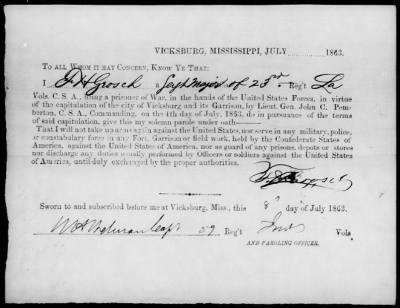 VICKSBURG, MISSISSIPPI, JULY 1863.
TO ALL WHOM IT MAY CONCERN, KNOW YE THAT:
I F H Grosch a Sergt Major of 23rd Reg't La
Vols. C. S. A., being a prisoner of War, in the hands of the United States Forces, in virtue
of the capitulation of the city of Vicksburg and its Garrison, by Lieut. Gen. John C. Pem-
berton, C. S. A., Commanding, on the 4th day of July, 1863, do in pursuance of the terms
of said capitulation, give this my solemn parole under oath——
That I will not take up arms again against the United States, nor serve in any military, police,
or constabulary force in any Fort, Garrison or field work, held by the Confederate States of
America, against the United States of America, nor as guard of any prisons, depots or stores
nor discharge any duties usually performed by Officers or soldiers against the United States
of America, until duly exchanged by the proper authorities.
Grosch
Sworn to and subscribed before me at Vicksburg, Miss., this 8th day of July 1863.
Capt 59 Reg't Ind Vols
AND PAROLING OFFICER.